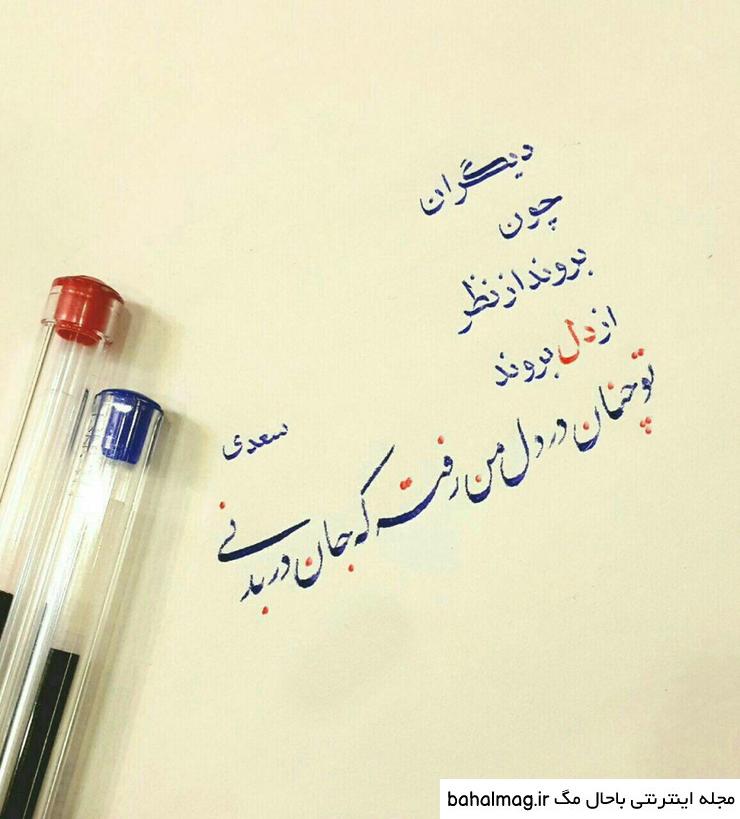 دیگران
چون
بروند از نظر
از دل بروند
تو چنان در دل من رفته که جان در بدنی
سعدی
مجله اینترنتی باحال مگ bahalmag.ir